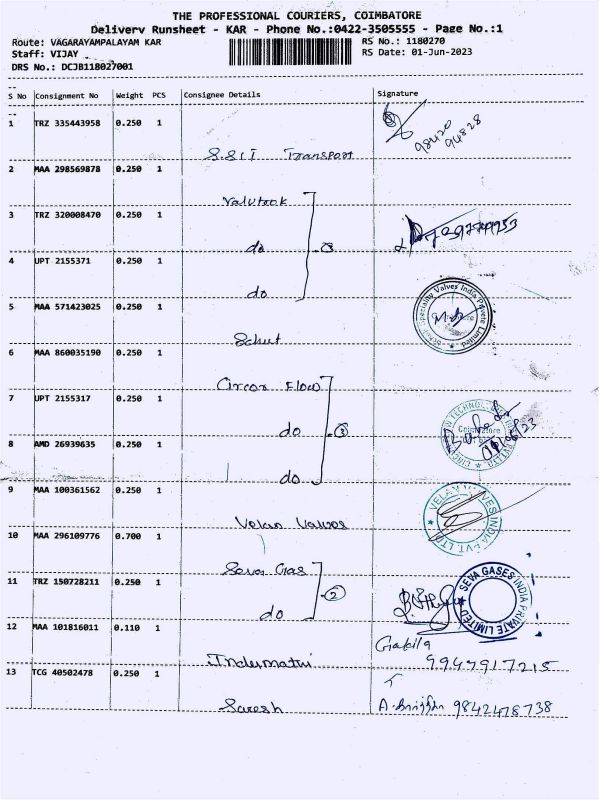 THE PROFESSIONAL COURIERS, COIMBATORE
Delivery Runsheet - KAR - Phone No.:0422-3505555 - Page No.:1
Route: VAGARAYAMPALAYAM KAR
RS No.: 1180270
Staff: VIJAY
RS Date: 01-Jun-2023
DRS No.: DCJB118027001
S No Consignment No Weight PCS Consignee Details Signature
1 TRZ 335443958 0.250 1
S.S.I.T Transport
98420
94828
2 MAA 298569878 0.250 1
Valutook
3 TRZ 320008470 0.250 1
do 3
4 UPT 2155371 0.250 1
do
5 MAA 571423025 0.250 1
Schut
Schut Specialty Valves India Private Limited
6 MAA 860035190 0.250 1
Circor Flow
7 UPT 2155317 0.250 1
do 3
Coimbatore
8 AMD 26939635 0.250 1
do
9 MAA 100361562 0.250 1
Velan Valves
VELAN VALVES INDIA PVT. LTD
10 MAA 296109776 0.700 1
Seva Gas
11 TRZ 150728211 0.250 1
do 2
SEVA GASES INDIA PRIVATE LIMITED
12 MAA 101816011 0.110 1
Indumathi
9947917215
13 TCG 40502478 0.250 1
Suresh
9842478738